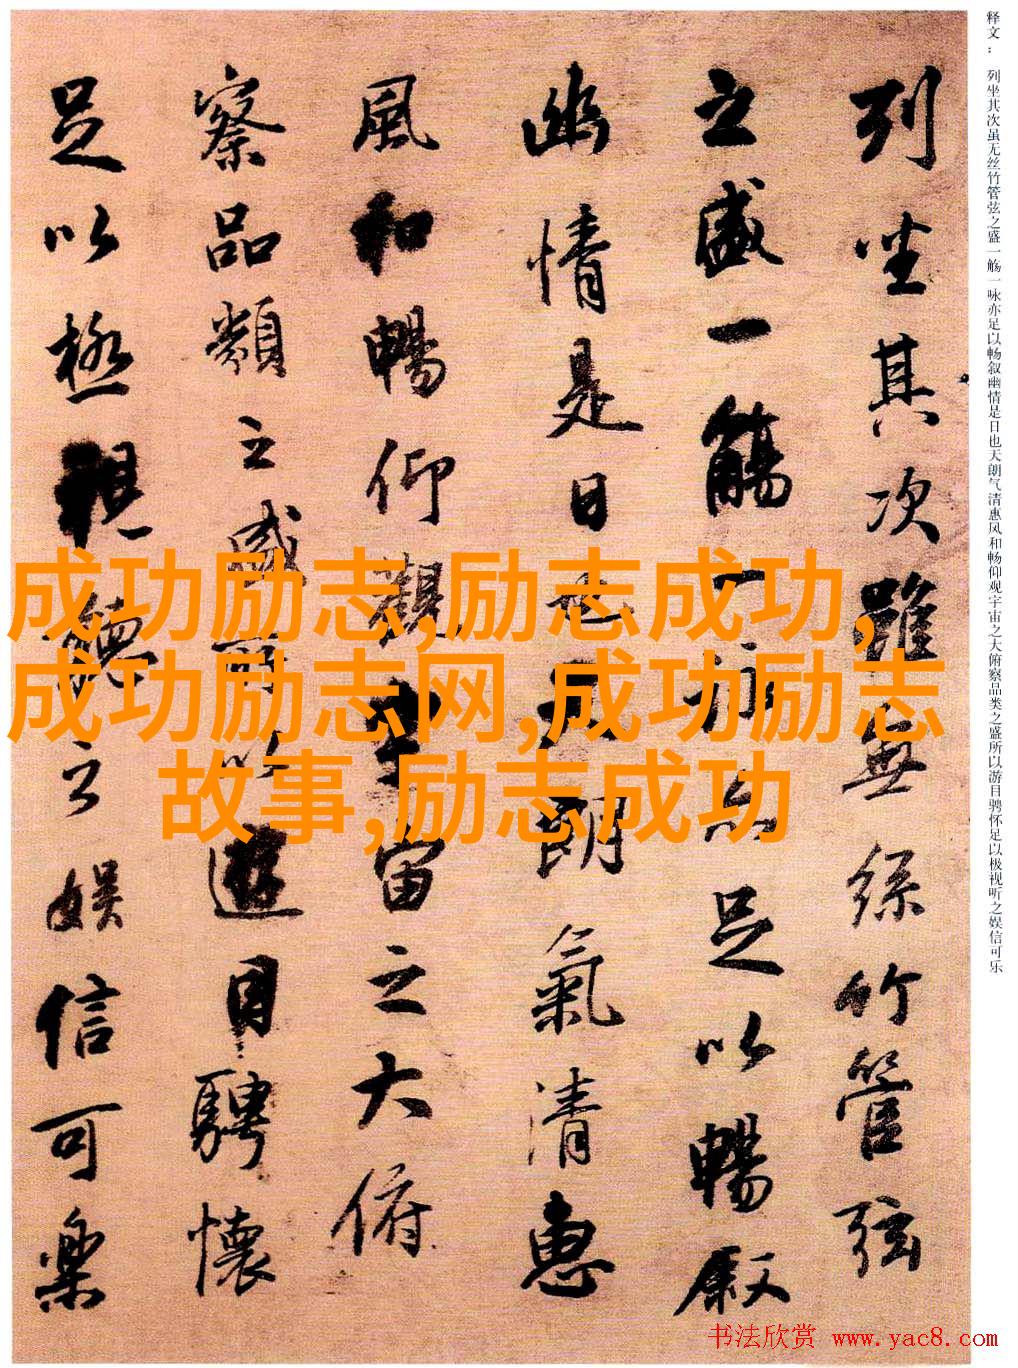 释文： 列坐其次虽无丝竹管弦之盛一觞一咏亦足以畅叙幽情是日也天朗气清惠风和畅仰观宇宙之大俯察品类之盛所以游目骋怀足以极视听之娱信可乐
列坐其次雖無絲竹管弦
之盛一觴一詠亦足以暢叙
幽情是日也天朗氣清惠
風和暢仰觀宇宙之大俯
察品類之盛所以遊目騁懷
足以極視聽之娛信可樂
成功励志,励志成功,
成功励志网,成功励志
故事,励志成功
书法欣赏 www.yac8.com